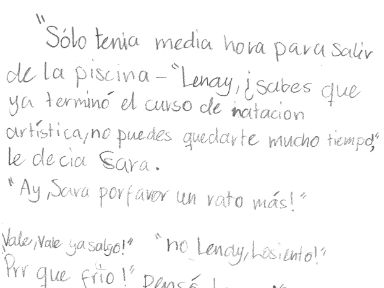 "Sólo tenia media hora para salir
de la piscina – "Lenay, ¿sabes que
ya terminó el curso de natacion
artística, no puedes quedarte mucho tiempo",
le decia Sara.
"Ay, Sara porfavor un rato más!"
Vale, Vale ya salgo!" "no Lenay, Losiento!"
Prr que frío!" Pensó